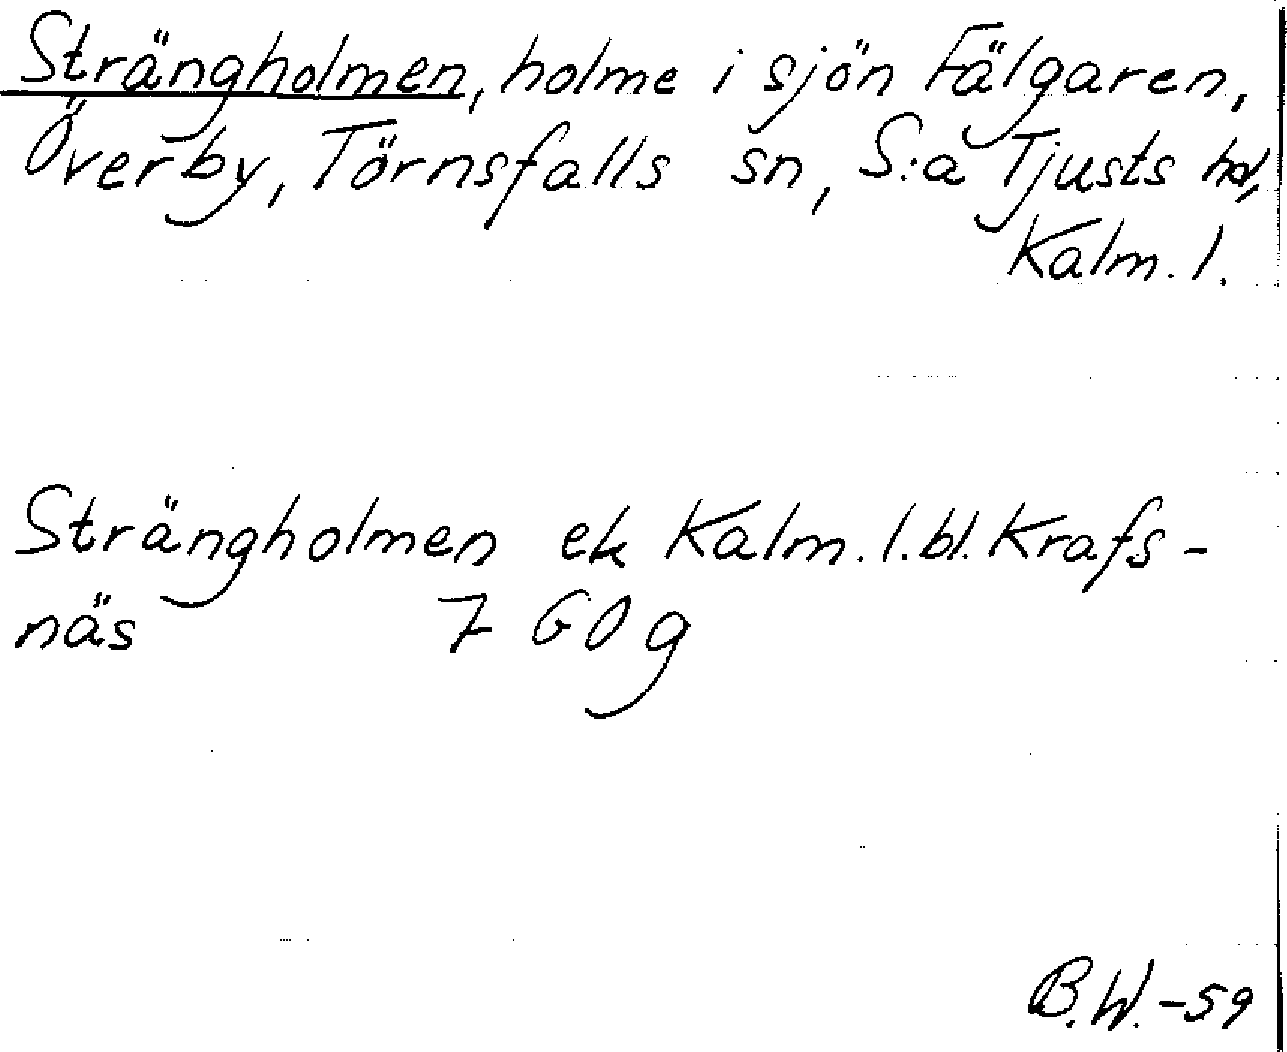 Strängholmen, holme i sjön Fälgaren,
Överby, Törnsfalls sn, S:a Tjusts hd,
Kalm. l.
Strängholmen ek Kalm. l. bl. Krafs-
näs 7 GO g
B.W.-59